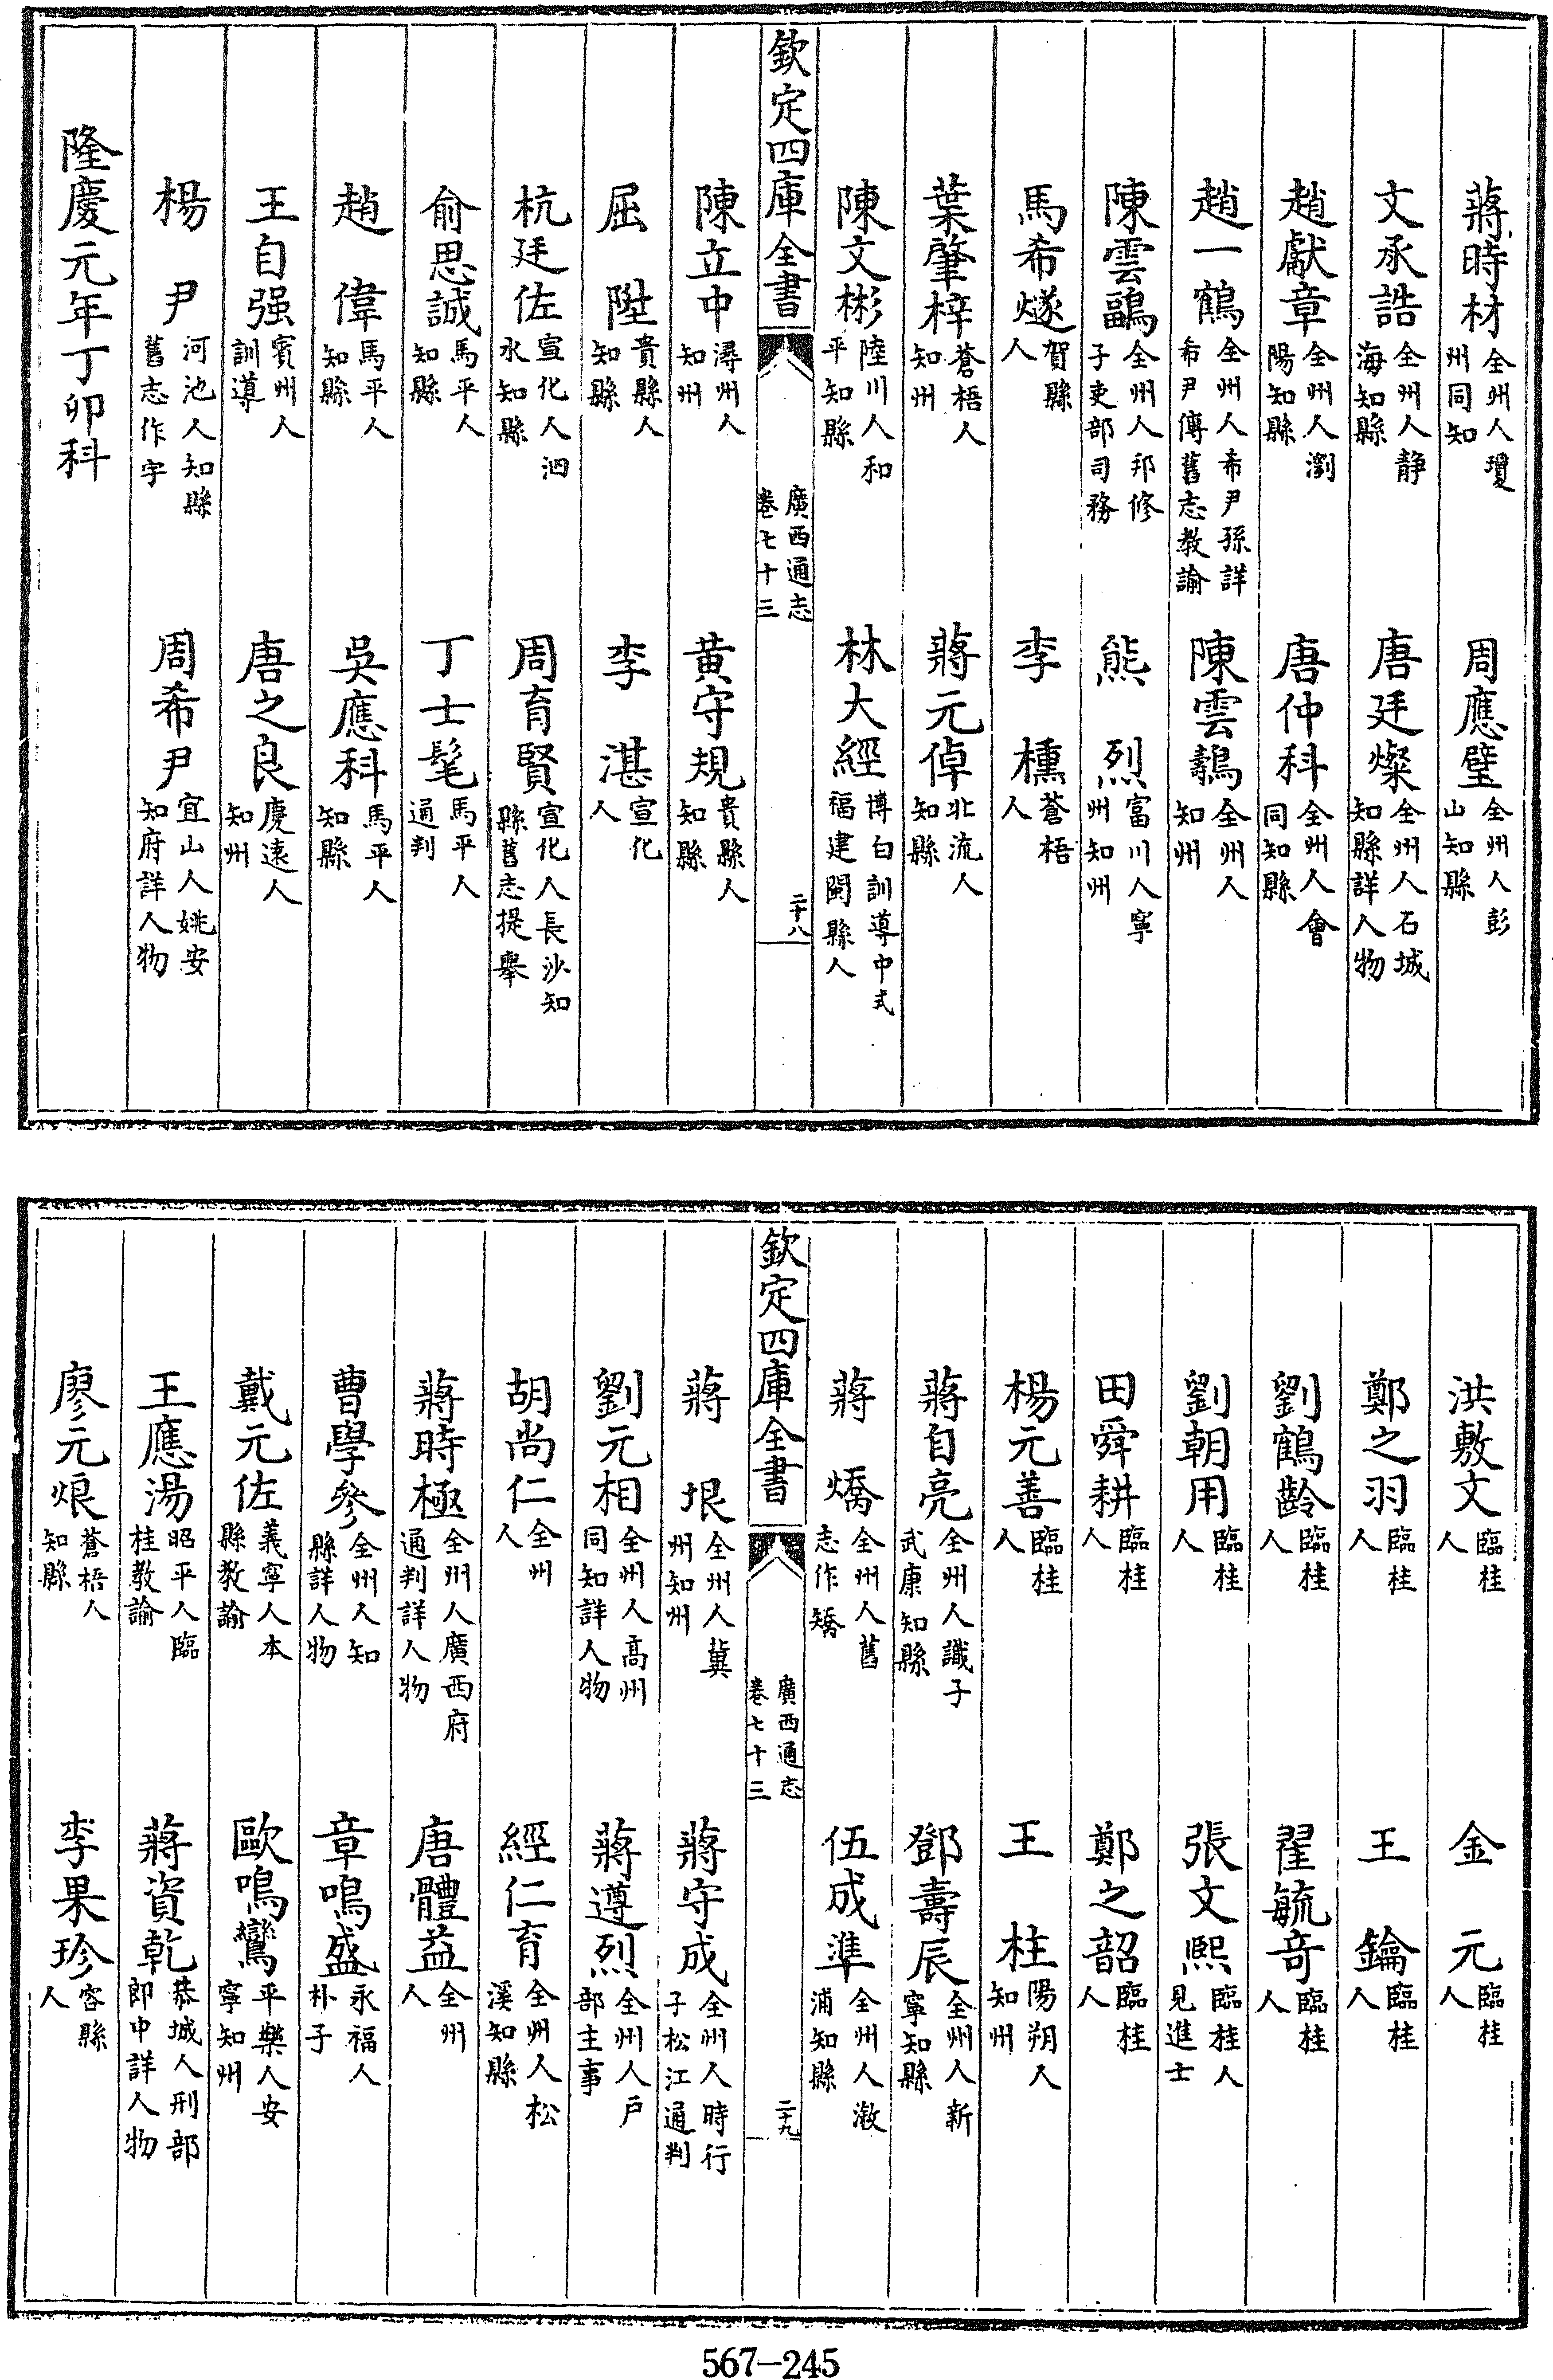 蔣時材全州人瓊州同知　周應璧全州人彭山知縣
文承誥全州人靜海知縣　唐廷燦全州人石城知縣詳人物
趙獻章全州人瀏陽知縣　唐仲科全州人會同知縣
趙一鶴全州人希尹孫詳希尹傳舊志教諭　陳雲鵲全州人知州
陳雲鷗全州人邦修子吏部司務　熊烈富川人寧州知州
馬希燧賀縣人　李櫄蒼梧人
葉肇梓蒼梧人知州　蔣元倬北流人知縣
陳文彬陸川人和平知縣　林大經博白訓導中式福建閩縣人
欽定四庫全書　廣西通志卷七十三　二十八
陳立中潯州人知州　黃守規貴縣人知縣
屈陞貴縣人知縣　李湛宣化人
杭廷佐宣化人泗水知縣　周育賢宣化人長沙知縣舊志提舉
俞思誠馬平人知縣　丁士髦馬平人通判
趙偉馬平人知縣　吳應科馬平人知縣
王自强賓州人訓導　唐之良慶遠人知州
楊尹河池人知縣舊志作宇　周希尹宜山人姚安知府詳人物
隆慶元年丁卯科
洪敷文臨桂人　金元臨桂人
鄭之羽臨桂人　王鑰臨桂人
劉鶴齡臨桂人　翟毓竒臨桂人
劉朝用臨桂人　張文熙臨桂人見進士
田舜耕臨桂人　鄭之韶臨桂人
楊元善臨桂人　王柱陽朔人知州
蔣自亮全州人識子武康知縣　鄧壽辰全州人新寧知縣
蔣燆全州人舊志作矯　伍成準全州人漵浦知縣
欽定四庫全書　廣西通志卷七十三　二十九
蔣垠全州人冀州知州　蔣守成全州人時行子松江通判
劉元相全州人高州同知詳人物　蔣遵烈全州人戶部主事
胡尚仁全州人　經仁育全州人松溪知縣
蔣時極全州人廣西府通判詳人物　唐體益全州人
曹學參全州人知縣詳人物　章鳴盛永福人朴子
戴元佐義寧人本縣教諭　歐鳴鸞平樂人安寧知州
王應湯昭平人臨桂教諭　蔣資乾恭城人刑部郎中詳人物
廖元烺蒼梧人知縣　李果珍容縣人
567-245